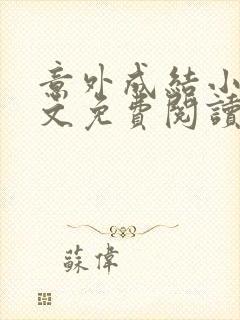 意外成結小
文免費閱讀
蘇偉